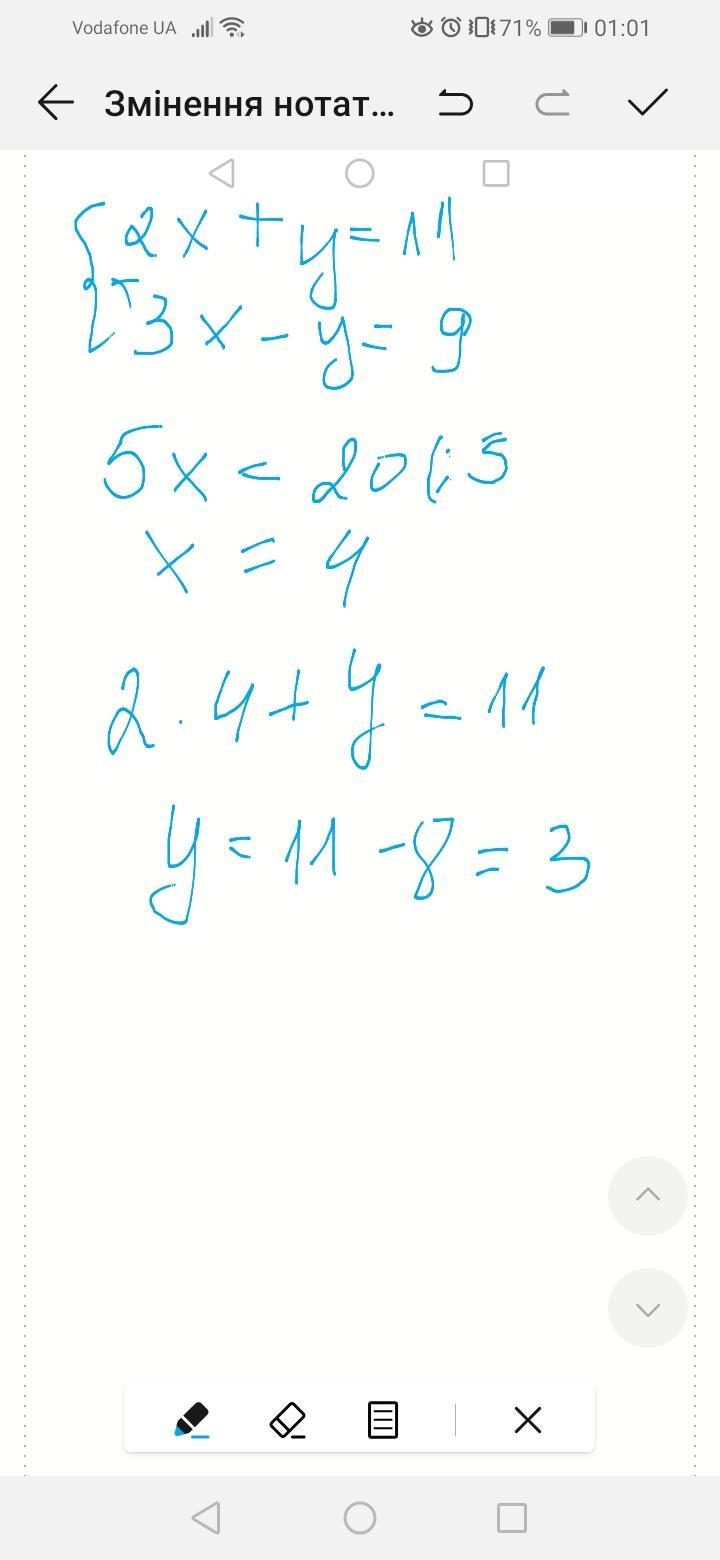 Vodafone UA 71% 01:01
Змінення нотат...
2x + y = 11
3x - y = 9
5x = 20 |:5
x = 4
2 · 4 + y = 11
y = 11 - 8 = 3